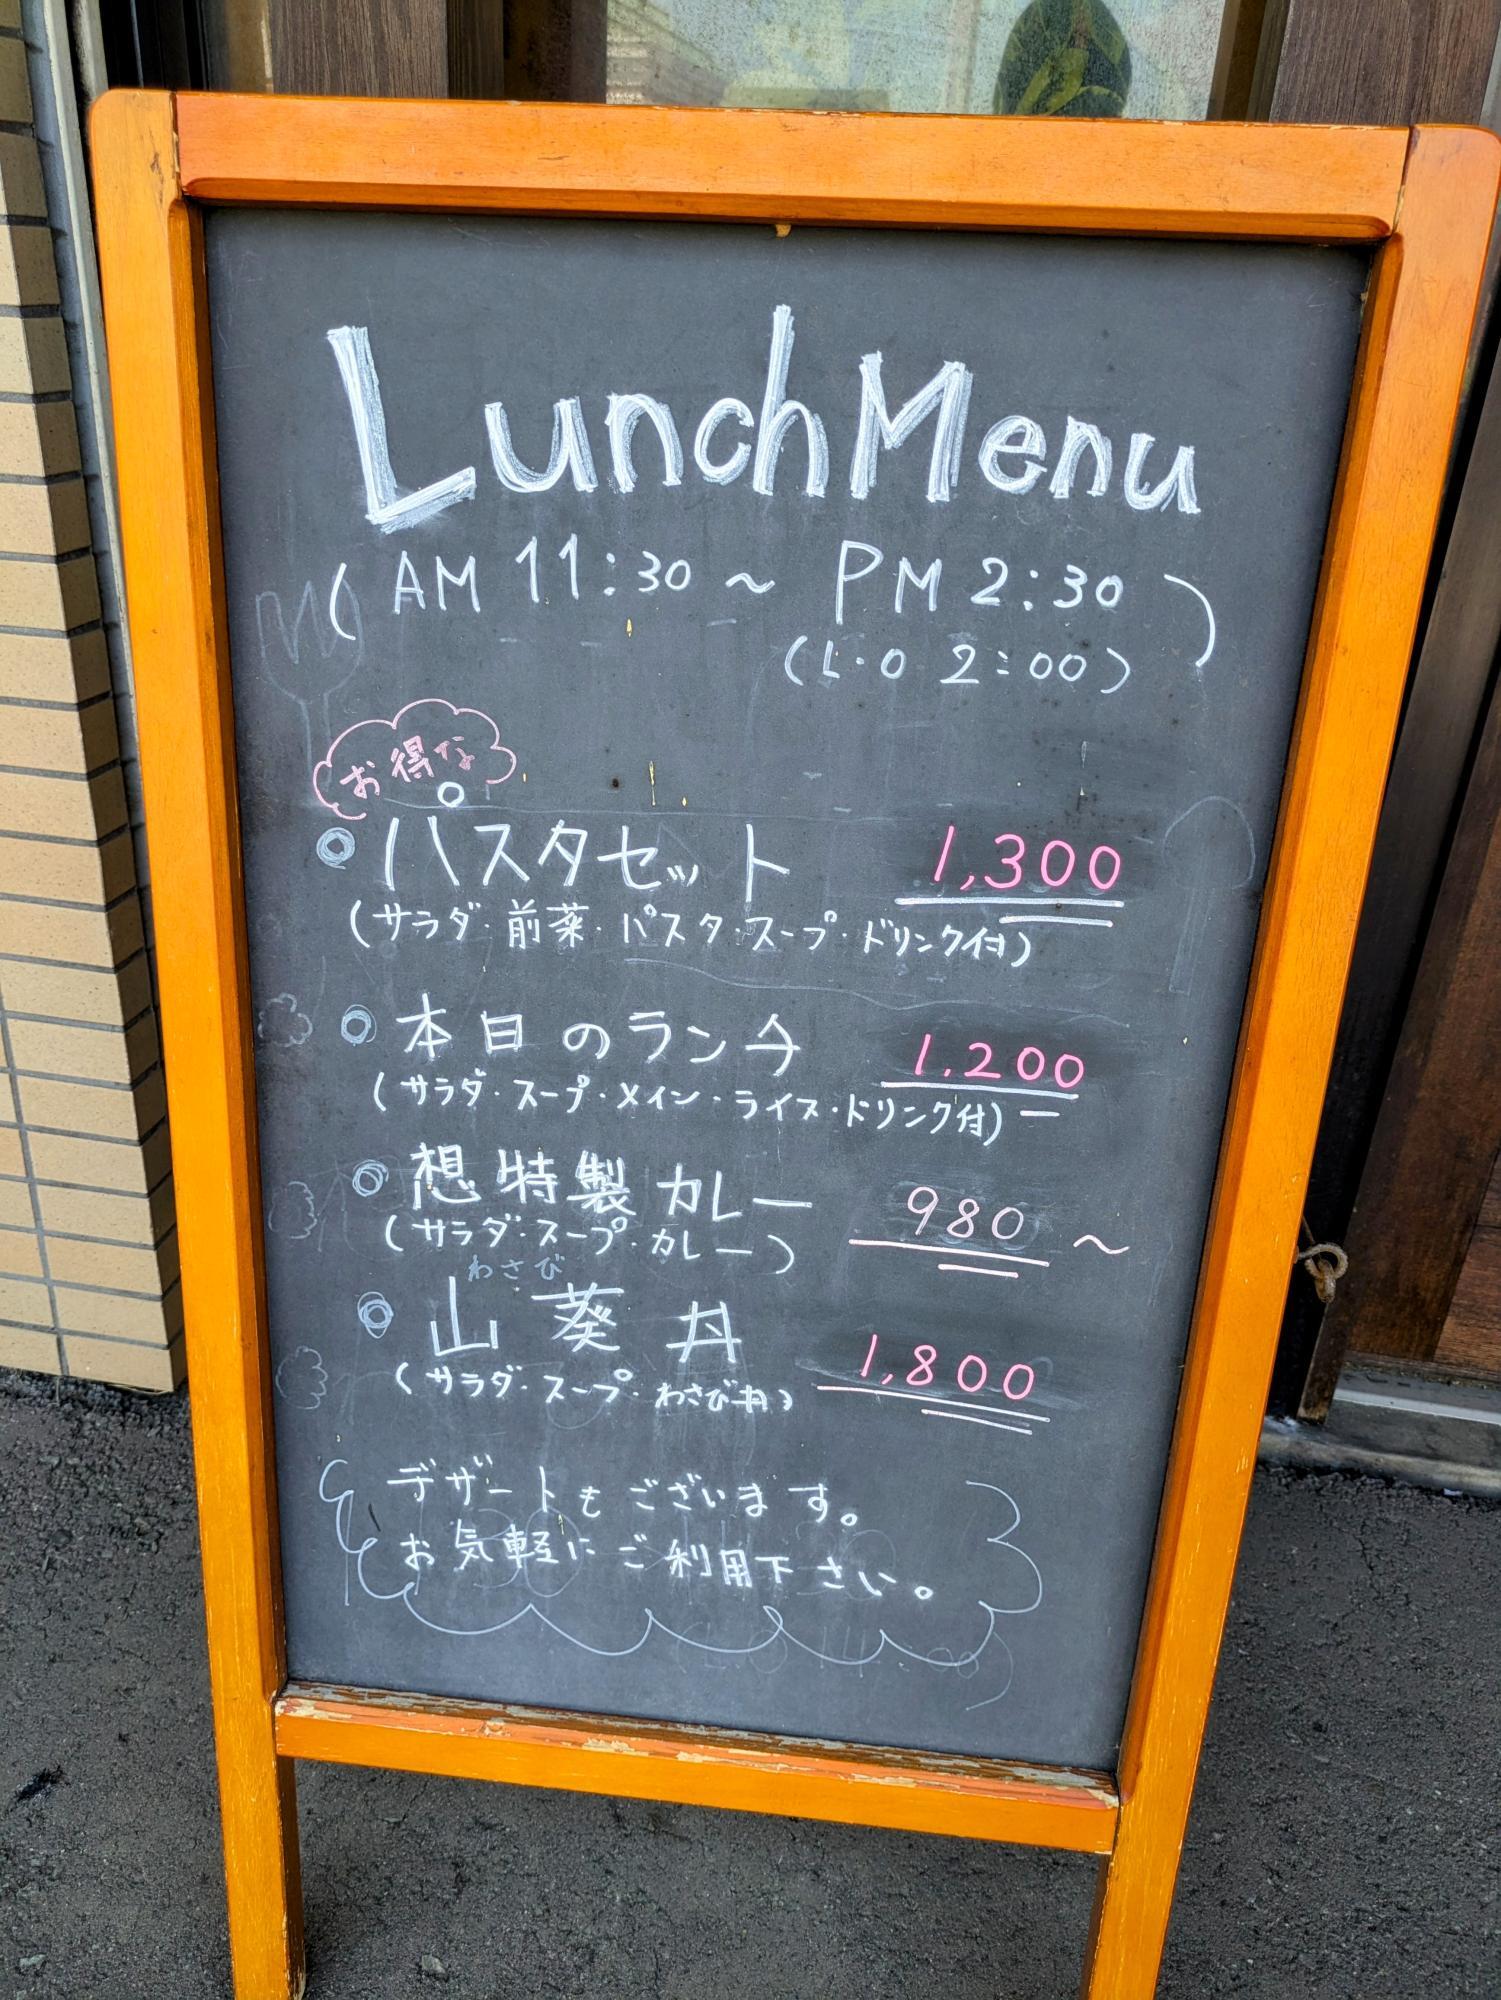 Lunch Menu
( AM 11:30 ~ PM 2:30 )
(L.O 2:00)
お得な
◎ パスタセット 1,300
(サラダ・前菜・パスタ・スープ・ドリンク付)
◎ 本日のランチ 1.200
(サラダ・スープ・メイン・ライス・ドリンク付)
◎ 想特製カレー 980 ~
(サラダ・スープ・カレー)
わさび
◎ 山葵丼 1,800
(サラダ・スープ・わさび丼)
デザートもございます。
お気軽にご利用下さい。